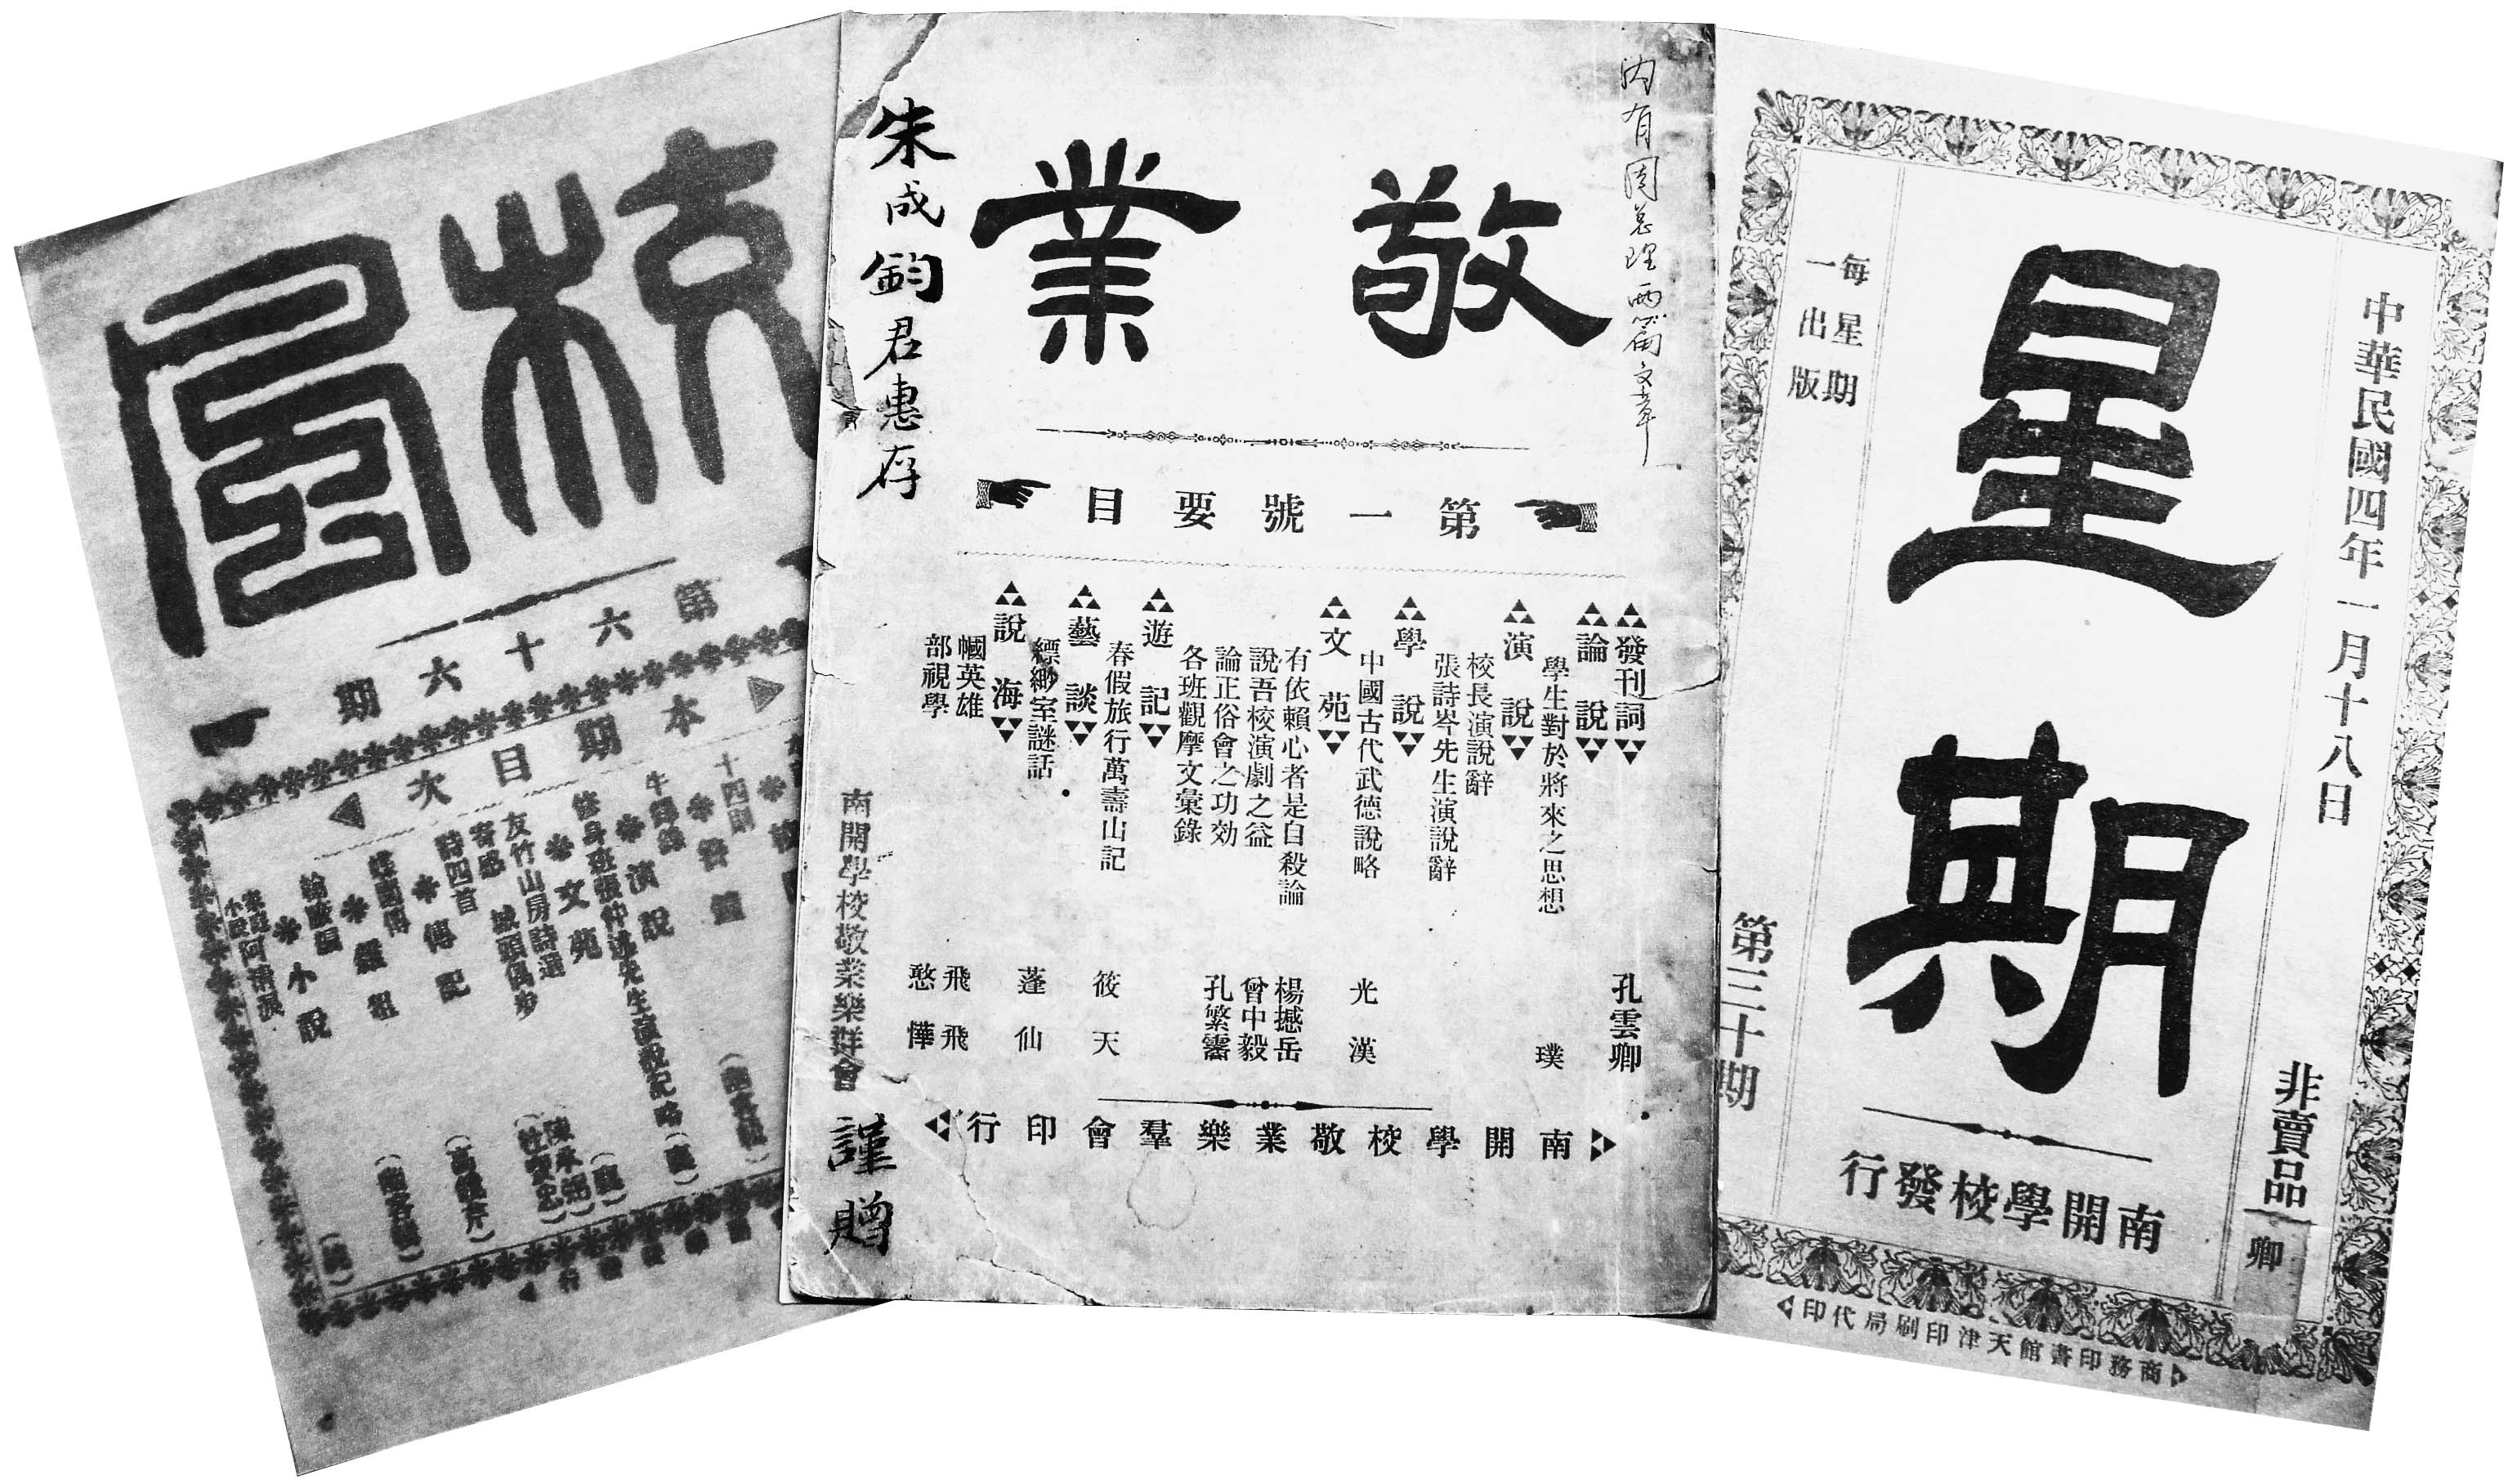 校風
第六十六期
本期目次
十四則
演說
修身班張仲述先生演說記略
文苑
友竹山房詩選
城頭偶步
寄感
詩四首
傳記
小說
敬業
內有周總理兩篇文章
朱成鈞君惠存
南開學校敬業樂群會
謹贈
第一號要目
發刊詞
孔雲卿
論說
學生對於將來之思想
璞
演說
校長演說辭
張詩岑先生演說辭
學說
中國古代武德說略
光漢
文苑
有依賴心者是自殺論
楊撼岳
說吾校演劇之益
曾中毅
論正俗會之功効
孔繁霱
各班觀摩文彙錄
遊記
春假旅行萬壽山記
筱天
藝談
縹緲室謎話
蓬仙
說海
幗英雄
飛飛
部視學
憨憚
南開學校敬業樂羣會印行
中華民國四年一月十八日
非賣品
卿
星期
每星期一出版
第三十期
南開學校發行
商務印書館天津印刷局代印